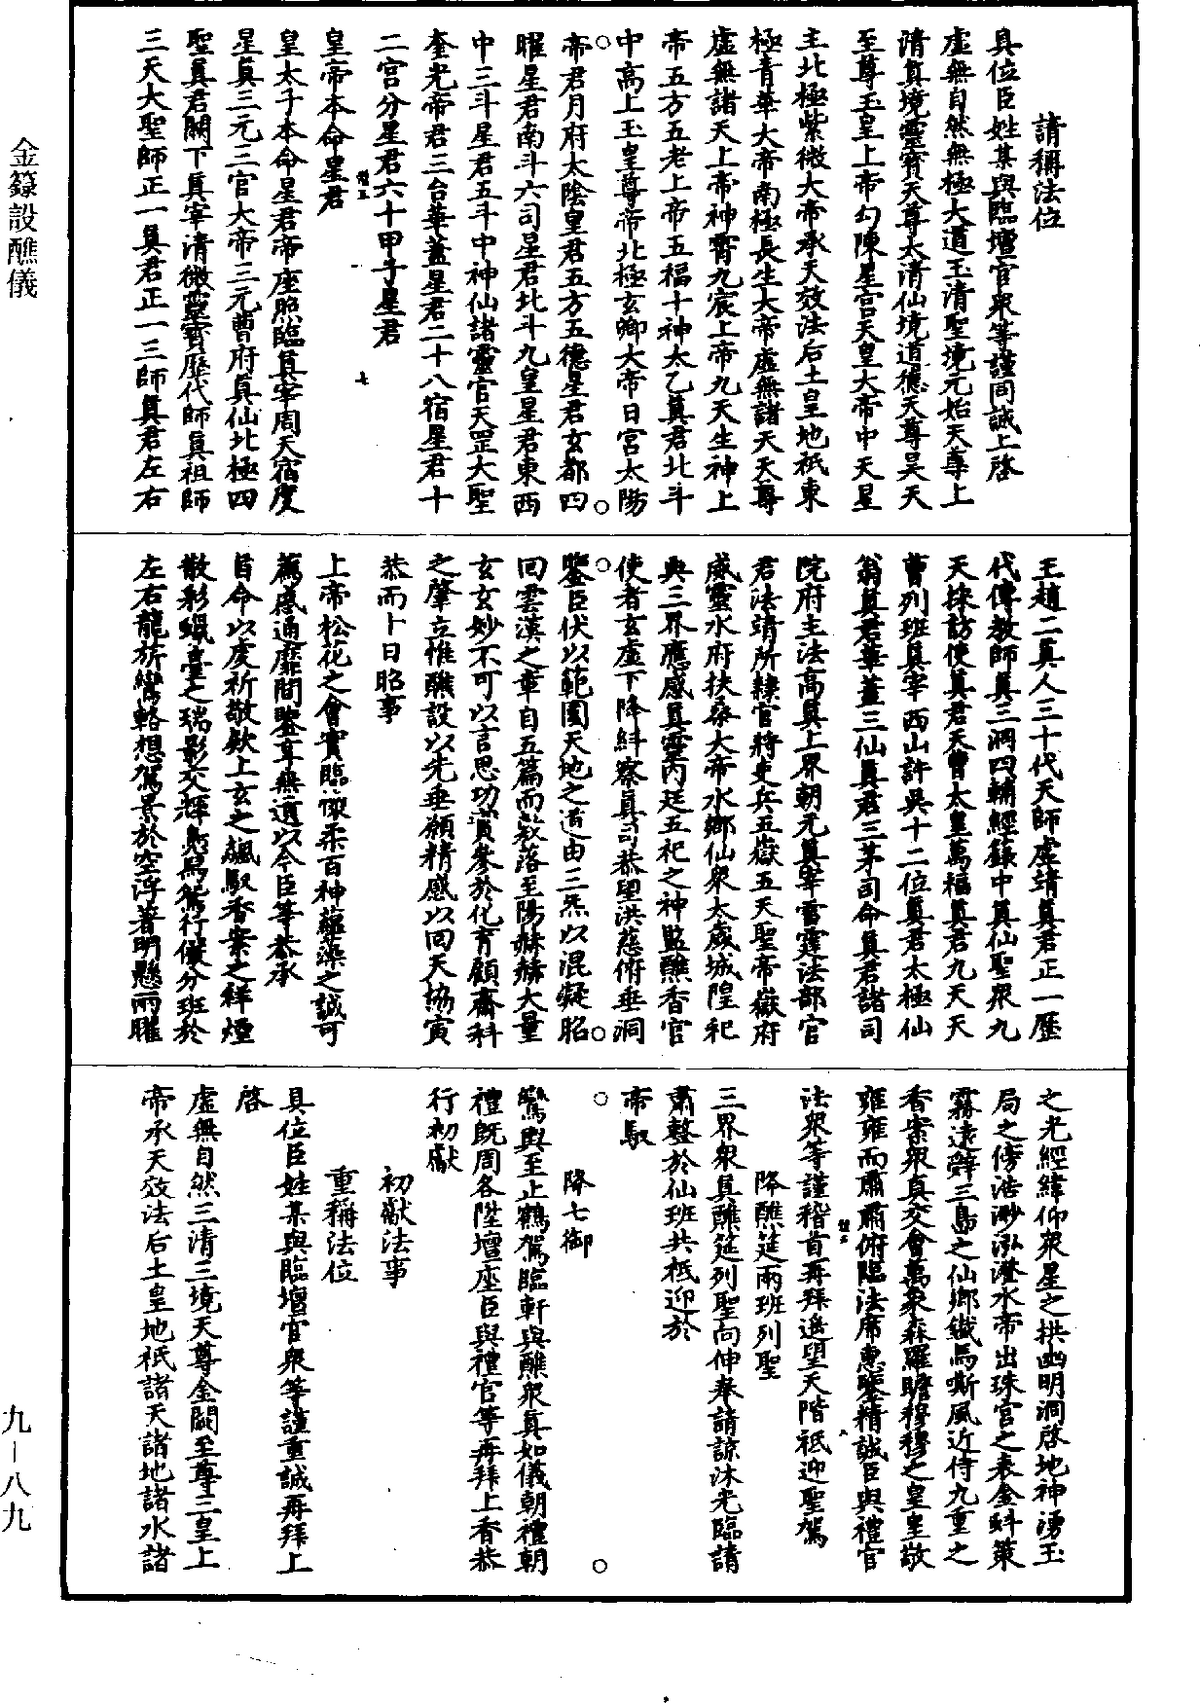 金籙設醮儀
請稱法位
具位臣姓某與臨壇官衆等謹同誠上啓
虛無自然無極大道玉清聖境元始天尊上
清真境靈寶天尊太清仙境道德天尊昊天
至尊玉皇上帝勾陳星宮天皇大帝中天星
主北極紫微大帝承天效法后土皇地祇東
極青華大帝南極長生大帝虛無諸天天尊
虛無諸天上帝神霄九宸上帝九天生神上
帝五方五老上帝五福十神太乙真君北斗
中高上玉皇尊帝北極玄卿大帝日宮太陽
帝君月府太陰皇君五方五德星君玄都四
曜星君南斗六司星君北斗九皇星君東西
中三斗星君五斗中神仙諸靈官天罡大聖
奎光帝君三台華蓋星君二十八宿星君十
二宮分星君六十甲子星君
皇帝本命星君
皇太子本命星君帝座照臨真宰周天宿度
星真三元三官大帝三元曹府真仙北極四
聖真君闕下真宰清微靈寶歷代師真祖師
三天大聖師正一真君正一三師真君左右
七
王趙二真人三十代天師虛靖真君正一歷
代傳教師真三洞四輔經籙中真仙聖衆九
天採訪使真君天曹太皇萬福真君九天天
曹列班真宰西山許吳十二位真君太極仙
翁真君華蓋三仙真君三茅司命真君諸司
院府主法高真上界朝元真宰雷霆法部官
君法靖所隸官將吏兵五嶽五天聖帝嶽府
威靈水府扶桑大帝水鄉仙衆太歲城隍祀
典三界應感真靈內廷五祀之神監醮香官
使者玄虛下降糾察真司恭望洪慈俯垂洞
鑒臣伏以範圍天地之道由三炁以混凝昭
回雲漢之章自五篇而敷落至陽赫赫大量
玄玄妙不可以言思功實參於化育顧齋科
之肇立惟醮設以先垂願精感以回天協寅
恭而卜日昭事
上帝松花之會實臨懷柔百神蘊藻之誠可
薦感通靡間鑒享無遺以今臣等恭承
旨命以虔祈敬欵上玄之飈馭香案之祥煙
散彩蠟臺之瑞影交輝鳧舄鴛行儼分班於
左右龍旂鸞輅想駕景於空浮著明懸兩曜
之光經緯仰衆星之拱幽明洞啓地神湧玉
局之傍浩渺泓澄水帝出珠宮之表金虯策
霧遠辭三島之仙鄉鐵馬嘶風近侍九重之
香案衆真交會萬象森羅瞻穆穆之皇皇敬
雍雍而肅肅俯臨法席惠鑒精誠臣與禮官
法衆等謹稽首再拜遙望天階祇迎聖駕
降醮筵兩班列聖
三界衆真醮筵列聖向伸奉請諒沐光臨請
肅整於仙班共祗迎於
帝馭
降七御
鸞輿至止鶴駕臨軒與醮衆真如儀朝禮朝
禮既周各陞壇座臣與禮官等再拜上香恭
行初獻
初獻法事
重稱法位
具位臣姓某與臨壇官衆等謹重誠再拜上
啓
虛無自然三清三境天尊金闕至尊三皇上
帝承天效法后土皇地祇諸天諸地諸水諸
九—八九